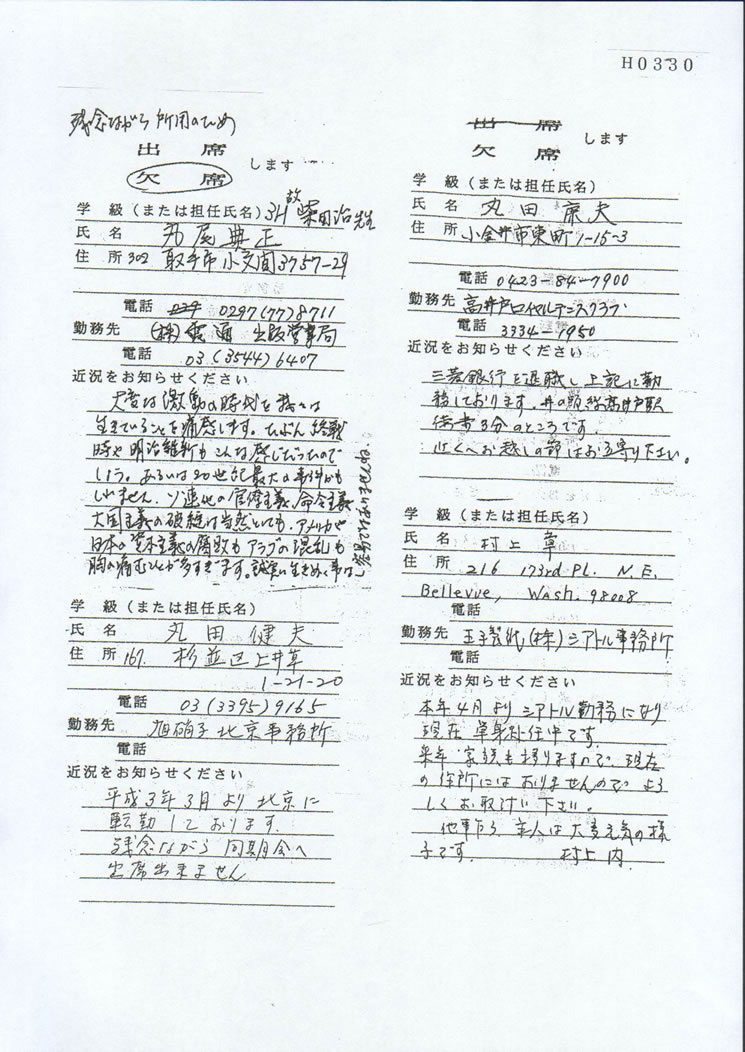 H0330
残念ながら 所用のため
出 席
欠 席
します
学 級（または担任氏名）3H 故 柴田治先生
氏 名 丸尾典正
住 所 302 取手市小文間3757-29
電話 0297(77)8711
勤務先 (株)電通 出版営業局
電話 03(3544)6407
近況をお知らせください
大変な激動の時代を我々は
生きていることを痛感します。たぶん終戦
時や明治維新もこんな感じだったので
しょう。あるいは20世紀最大の事件かも
しれません。ソ連他の官僚主義、命令主義
大国主義の破綻は当然としても、アメリカや
日本の資本主義の腐敗もアラブの混乱も
胸の痛むことが多すぎます。誠実に生きぬく事は
学 級（または担任氏名）
氏 名 丸田健夫
住 所 167. 杉並区上井草
1-21-20
電話 03(3395)9165
勤務先 旭硝子北京事務所
電話
近況をお知らせください
平成3年3月より北京に
転勤しております.
残念ながら同期会へ
出席出来ません
出 席
欠 席
します
学 級（または担任氏名）
氏 名 丸田 夫
住 所 小金井市東町1-15-3
電話 0423-84-7900
勤務先 高井戸ロイヤルテニスクラブ
電話 3334-1950
近況をお知らせください
三菱銀行を退職し上記に勤
務しております。井の頭線高井戸駅
徒歩3分のところです。
近くへお越しの節はお立寄り下さい。
学 級（または担任氏名）
氏 名 村上 章
住 所 216 173rd PL. N.E.
Bellevue, Wash. 98008
電話
勤務先 王子製紙(株)シアトル事務所
電話
近況をお知らせください
本年4月よりシアトル勤務になり
現在 単身赴任中です。
来年 家族も移りますので 現在
の住所にはおりませんので よろ
しくお取計い下さい。
他事乍ら 主人は大変元気の様
子です. 村上 内.